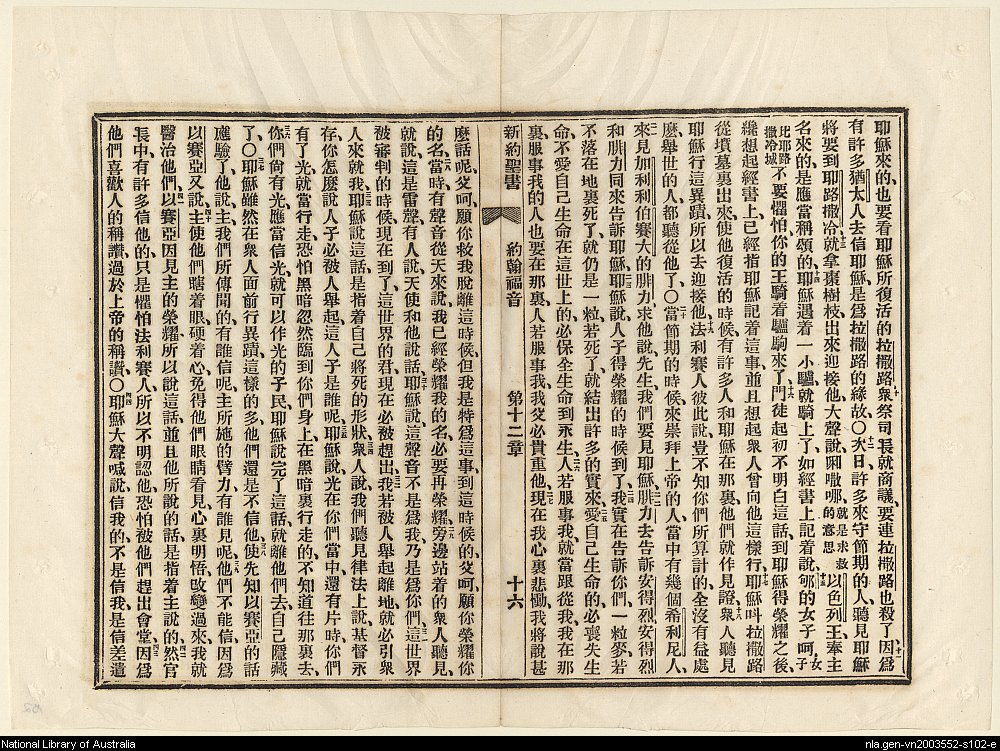 耶穌來的、也要看耶穌所復活的拉撒路、十衆祭司長就商議、要連拉撒路也殺了、十一因爲
有許多猶太人去信耶穌、是爲拉撒路的緣故、〇十二次日許多來守節期的人、聽見耶穌
將要到耶路撒冷、十三就拿棗樹枝出來迎接他、大聲說、唎嘝哪、就是求救的意思以色列王奉主
名來的、是應當稱頌的、十四耶穌遇着一小驢、就騎上了、如經書上記着說、十五郇的女子呵、女子
比耶路撒冷城不要懼怕、你的王騎着驢駒來了、十六門徒起初不明白這話、到耶穌得榮耀之後、
纔想起經書上、已經指耶穌記着這事、並且想起衆人曾向他這樣行、十七耶穌呌拉撒路
從墳墓裏出來、使他復活的時候、有許多人和耶穌在那裏、他們就作見證、十八衆人聽見
耶穌行這異蹟、所以去迎接他、十九法利賽人彼此說、豈不知你們所算計的、全沒有益處
麽、舉世的人都聽從他了、〇二十當節期的時候、來崇拜上帝的人當中、有幾個希利尼人、
二一來見加利利伯賽大的腓力、求他說、先生、我們要見耶穌、二二腓力去告訴安得烈、安得烈
和腓力同來告訴耶穌、二三耶穌說、人子得榮耀的時候到了、二四我實在告訴你們、一粒麥若
不落在地裏死了、就仍是一粒、若死了、就結出許多的實來、二五愛自己生命的、必喪失生
命、不愛自己生命在這世上的、必保全生命到永生、二六人若服事我、就當跟從我、我在那
裏、服事我的人也要在那裏、人若服事我、我父必貴重他、二七現在我心裏悲慟、我將說甚
新約聖書 約翰福音 第十二章 十六
麽話呢、父呵、願你救我脫離這時候、但我是特爲這事到這時候的、二八父呵、願你榮耀你
的名、當時有聲音從天來說、我已經榮耀我的名、必要再榮耀、二九旁邊站着的衆人聽見、
就說、這是雷聲、有人說、天使和他說話、三十耶穌說、這聲音不是爲我、乃是爲你們、三一這世界
被審判的時候現在到了、這世界的君、現在必被趕出、三二我若被人舉起離地、就必引衆
人來就我、三三耶穌說這話、是指着自己將死的形狀、三四衆人說、我們聽見律法上說、基督永
存、你怎麽說人子必被人舉起、這人子是誰呢、三五耶穌說、光在你們當中、還有片時、你們
有了光、就當行走、恐怕黑暗忽然臨到你們身上、在黑暗裏行走的、不知道往那裏去、
三六你們尙有光、應當信光、就可以作光的子民、耶穌說完了這話、就離他們去、自己隱藏
了、〇三七耶穌雖然在衆人面前行異蹟、這樣的多、他們還是不信他、三八使先知以賽亞的話
應驗了、他說、主、我們所傳聞的、有誰信呢、主所施的臂力、有誰見呢、三九他們不能信、因爲
以賽亞又說、四十主使他們瞎着眼、硬着心、免得他們眼睛看見、心裏明悟、改變過來、我就
醫治他們、四一以賽亞因見主的榮耀、所以說這話、並且他所說的話、是指着主說的、四二然官
長中有許多信他的、只是懼怕法利賽人、所以不明認他、恐怕被他們趕出會堂、四三因爲
他們喜歡人的稱讚、過於上帝的稱讚、〇四四耶穌大聲喊說、信我的、不是信我、是信差遣
National Library of Australia
nla.gen-vn2003552-s102-e